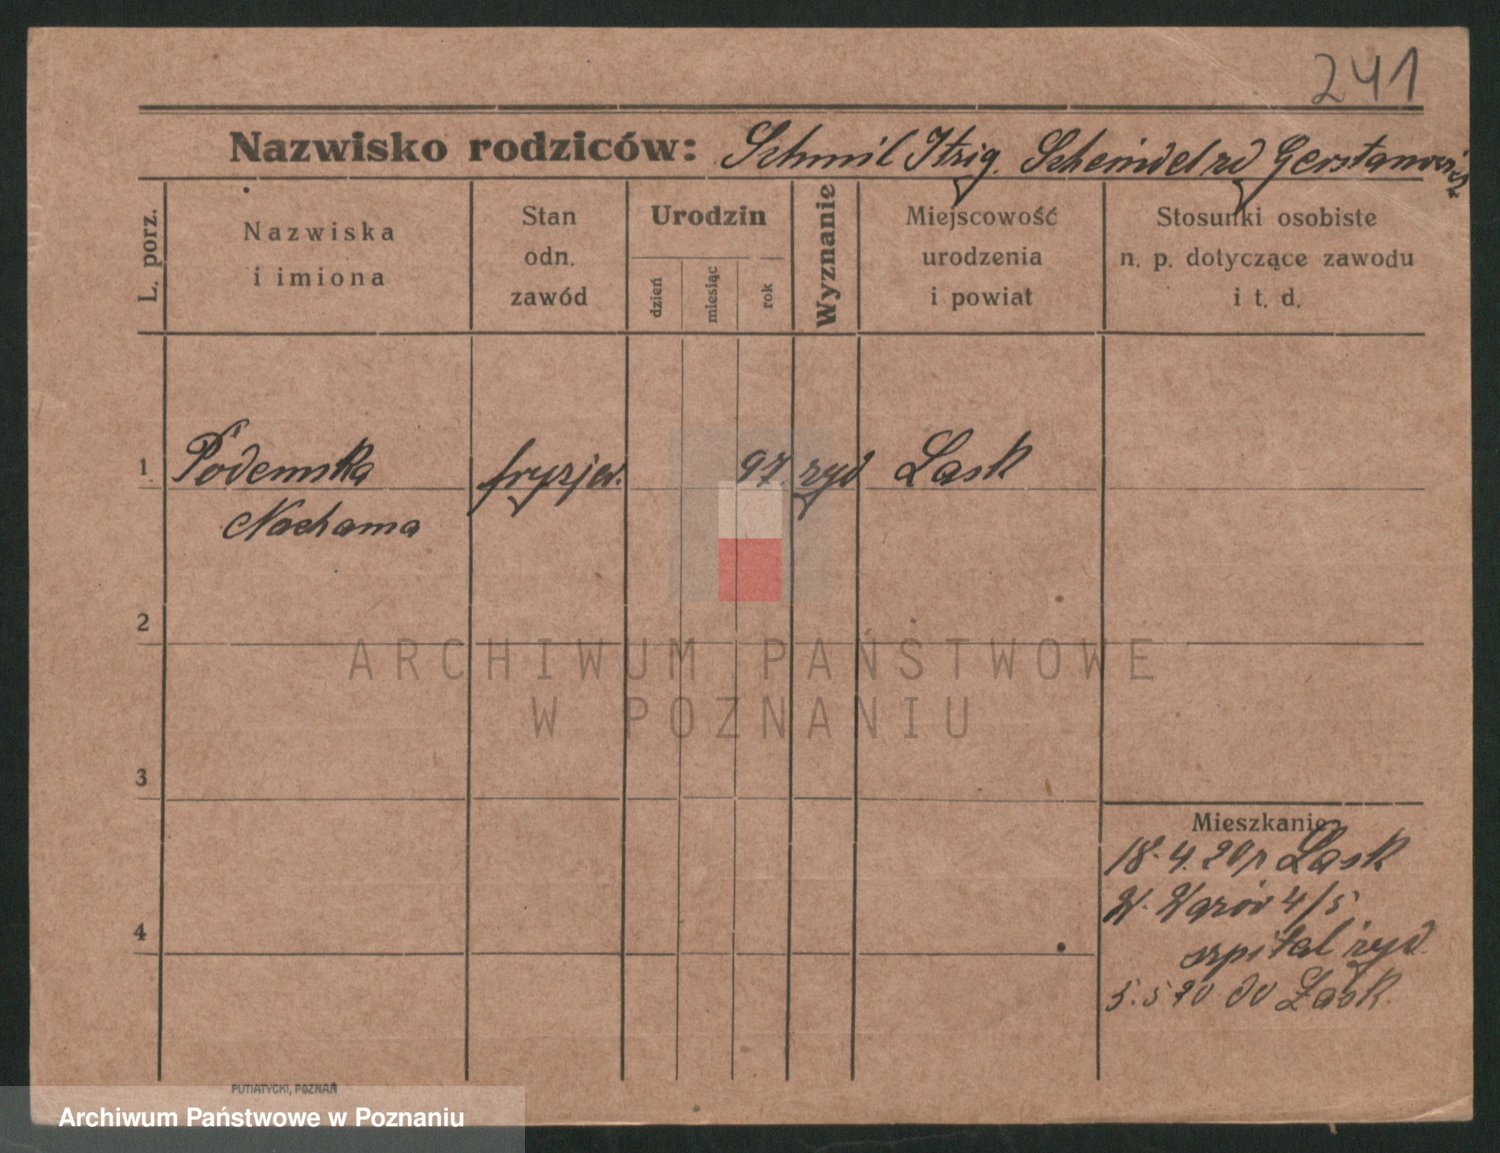 241
Nazwisko rodziców: Schmil Itzig. Scheindel zd Gerstanowicz
L. porz.
Nazwiska
i imiona
Stan
odn.
zawód
Urodzin
dzień
miesiąc
rok
Wyznanie
Miejscowość
urodzenia
i powiat
Stosunki osobiste
n. p. dotyczące zawodu
i t. d.
1 Podemska fryzjer. 97. żyd Lask
Nachama
2
ARCHIWUM PAŃSTWOWE
W POZNANIU
3
Mieszkanie
18. 4. 20 Lask
4/5
4
szpital żyd.
5. 5 20 do Łask.
PUTIATYCKI, POZNAŃ
Archiwum Państwowe w Poznaniu